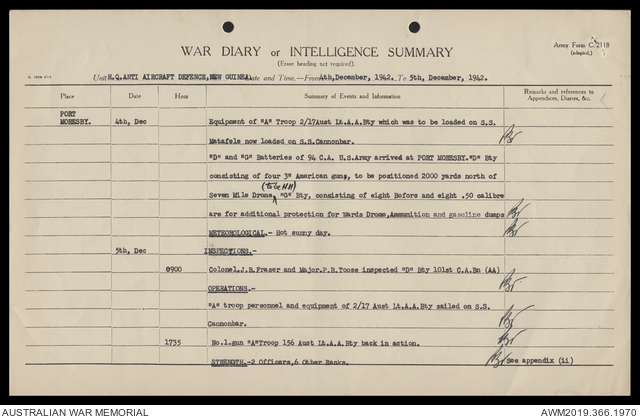 WAR DIARY or INTELLIGENCE SUMMARY
(Erase heading not required).
Army Form C. 2118
(adapted.)
Unit H.Q.ANTI AIRCRAFT DEFENCE,NEW GUINEA. Date and Time.—From 4th,December, 1942. To 5th, December, 1942.
Place Date Hour Summary of Events and Information Remarks and references to
Appendices, Diaries, &c.
PORT
MORESBY. 4th, Dec Equipment of "A" Troop 2/17Aust Lt.A.A.Bty which was to be loaded on S.S.
Matafele now loaded on S.S.Cannonbar.
"D" and "G" Batteries of 94 C.A. U.S.Army arrived at PORT MORESBY."D" Bty
consisting of four 3" American guns, to be positioned 2000 yards north of
(to be HH)
Seven Mile Drome, "G" Bty, consisting of eight Bofors and eight .50 calibre
are for additional protection for Wards Drome,Ammunition and gasoline dumps
METEOROLOGICAL.- Hot sunny day.
5th, Dec INSPECTIONS.-
0900 Colonel.J.R.Fraser and Major.P.B.Toose inspected "D" Bty 101st C.A.Bn (AA)
OPERATIONS.-
"A" troop personnel and equipment of 2/17 Aust Lt.A.A.Bty sailed on S.S.
Cannonbar.
1735 No.1.gun "A"Troop 156 Aust Lt.A.A.Bty back in action.
STRENGTH.-2 Officers,6 Other Ranks. See appendix (ii)
AUSTRALIAN WAR MEMORIAL AWM2019.366.1970